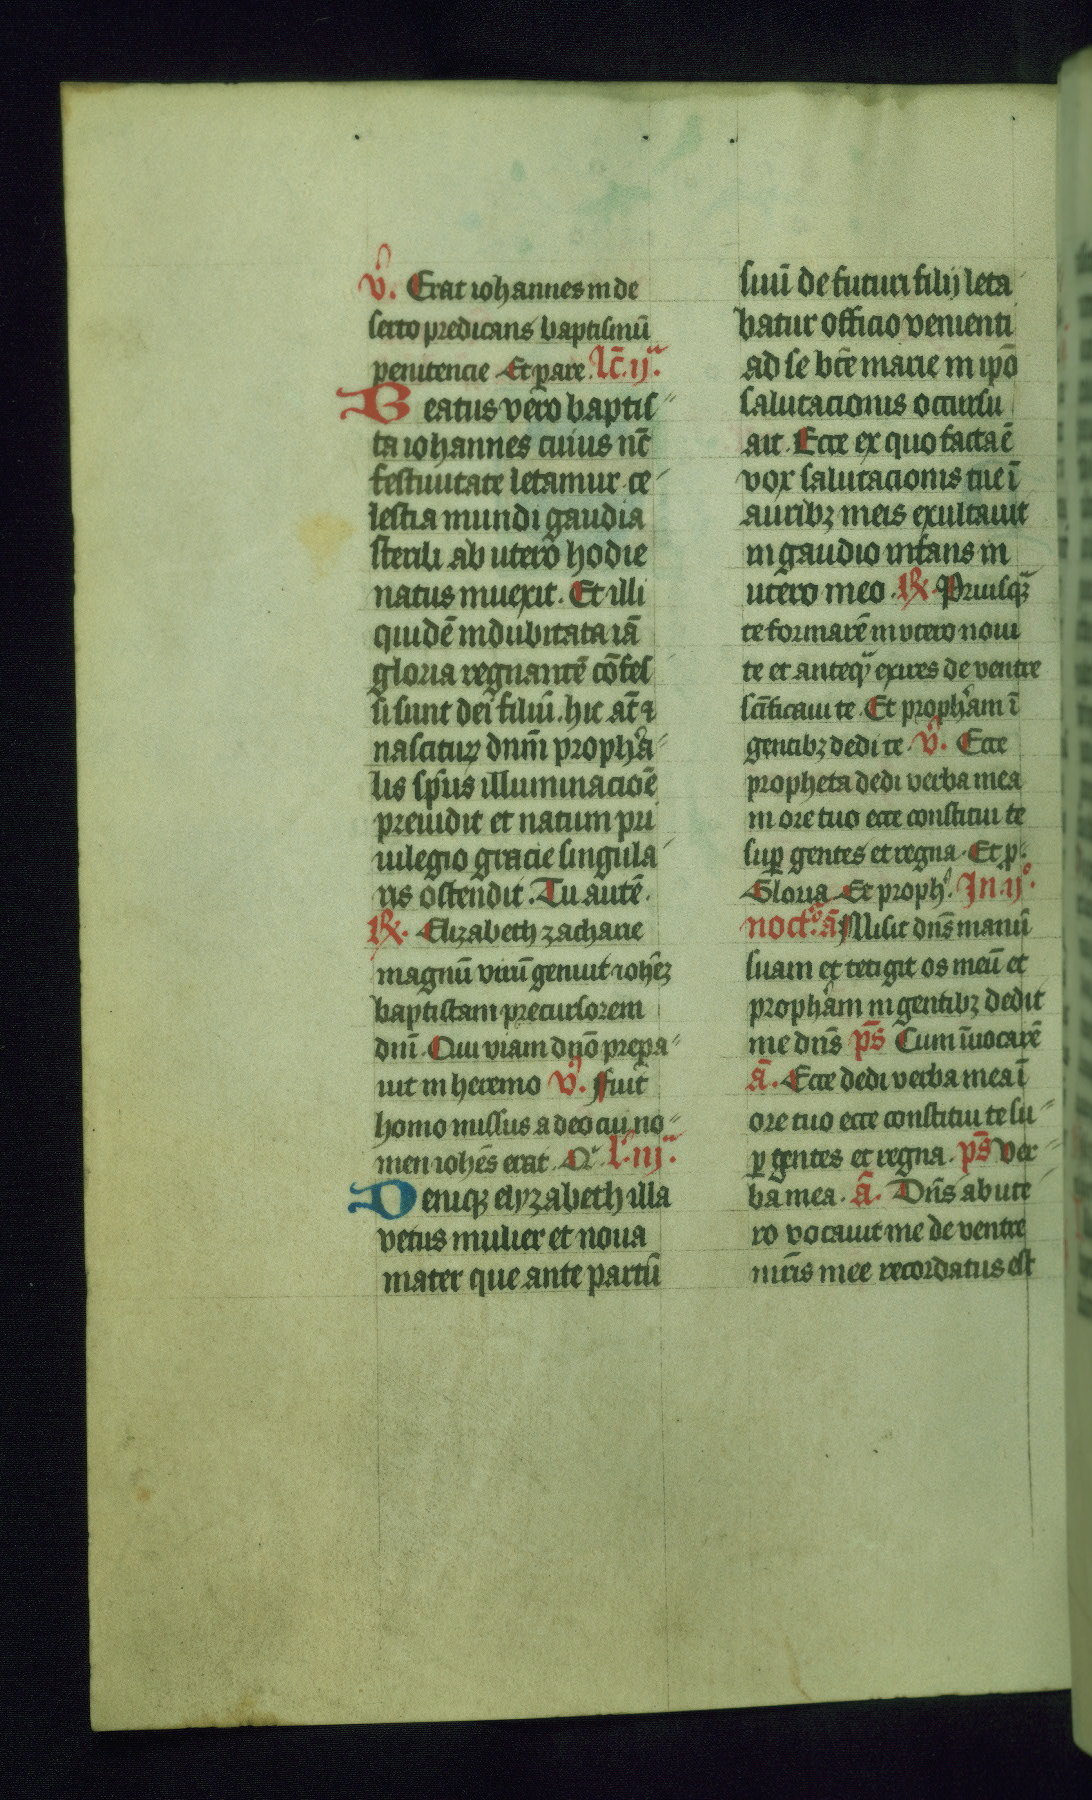 v̊. Erat iohannes in de
serto predicans baptismū
penitencie Et pare. lc̄. ij.ᵃ
Beatus vero baptis
ta iohannes cuius nūc
festiuitate letamur ce
lestia mundi gaudia
sterili ab utero hodie
natus inuexit. Et illi
quidē indubitata iā
gloria regnantē cōfes
si sunt dei filiū. hic at̄ ⁊
nasciturꝝ dn̄m prophā
lis sp̄us illuminacioē
preuidit et natum pri
uilegio gracie singula
ris ostendit. Tu autē.
℞. Elizabeth zacharie
magnū virū genuit ioh̄ez
baptistam precursorem
dn̄i. Qui viam dn̄o prepa
uit in heremo v̊. Fuit
homo missus a deo cui no
men ioh̄es erat. Q. l. iij.ᵃ
Deniqꝫ elyzabeth illa
vetus mulier et noua
mater que ante partū
suū de futuri filij leta
batur officio venienti
ad se bt̄e marie in ip̄o
salutacionis occursu
ait. Ecce ex quo facta ē
vox salutacionis tue ī
auribꝫ meis exultauit
in gaudio infans in
utero meo. ℞. Priusqꝫ
te formarē in vtero noui
te et anteqᵃ exires de ventre
sc̄ificaui te. Et prophām ī
gentibꝫ dedi te. v̊. Ecce
propheta dedi verba mea
in ore tuo ecce constitui te
suꝑ gentes et regna. Et p̄.
Gloria Et proph. In. ij.°
noct.° ā Misit dn̄s manū
suam et tetigit os meū et
prophām in gentibꝫ dedit
me dn̄s ps̄ Cum īuocarē
ā. Ecce dedi verba mea ī
ore tuo ecce constitui te su
ꝑ gentes et regna. ps̄ Ver
ba mea. ā. Dn̄s ab ute
ro vocauit me de ventre
mr̄is mee recordatus est